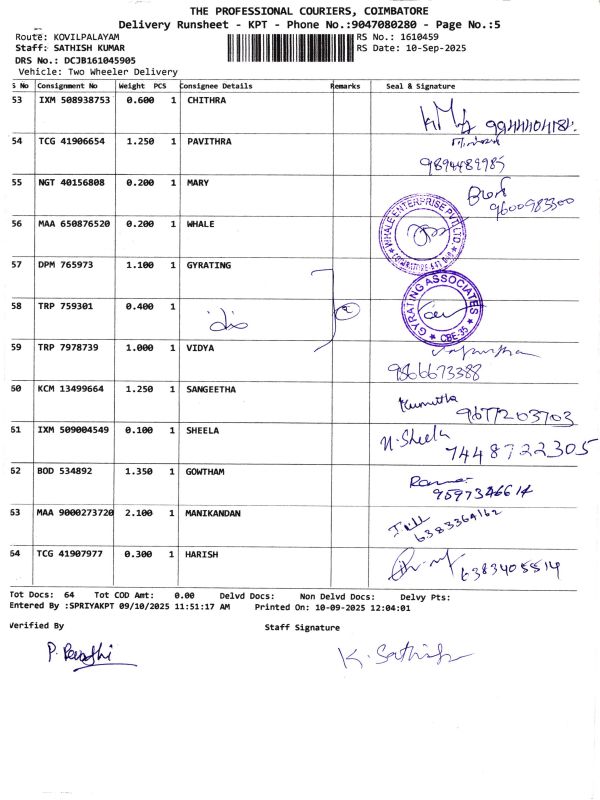 THE PROFESSIONAL COURIERS, COIMBATORE
Delivery Runsheet - KPT - Phone No.:9047080280 - Page No.:5
Route: KOVILPALAYAM
RS No.: 1610459
Staff: SATHISH KUMAR
RS Date: 10-Sep-2025
DRS No.: DCJB161045905
Vehicle: Two Wheeler Delivery
S No Consignment No Weight PCS Consignee Details Remarks Seal & Signature
53 IXM 508938753 0.600 1 CHITHRA
54 TCG 41906654 1.250 1 PAVITHRA
9894489985
55 NGT 40156808 0.200 1 MARY
9600983300
56 MAA 650876520 0.200 1 WHALE
WHALE ENTERPRISE PVT LTD
57 DPM 765973 1.100 1 GYRATING
GYRATING ASSOCIATES
CBE-35
58 TRP 759301 0.400 1
59 TRP 7978739 1.000 1 VIDYA
9566673388
60 KCM 13499664 1.250 1 SANGEETHA
Kumutha
9677203703
61 IXM 509004549 0.100 1 SHEELA
N. Sheela
7448722305
62 BOD 534892 1.350 1 GOWTHAM
9597346614
63 MAA 9000273720 2.100 1 MANIKANDAN
6383364162
64 TCG 41907977 0.300 1 HARISH
6383405514
Tot Docs: 64 Tot COD Amt: 0.00 Delvd Docs: Non Delvd Docs: Delvy Pts:
Entered By :SPRIYAKPT 09/10/2025 11:51:17 AM Printed On: 10-09-2025 12:04:01
Verified By
Staff Signature
K. Sathish